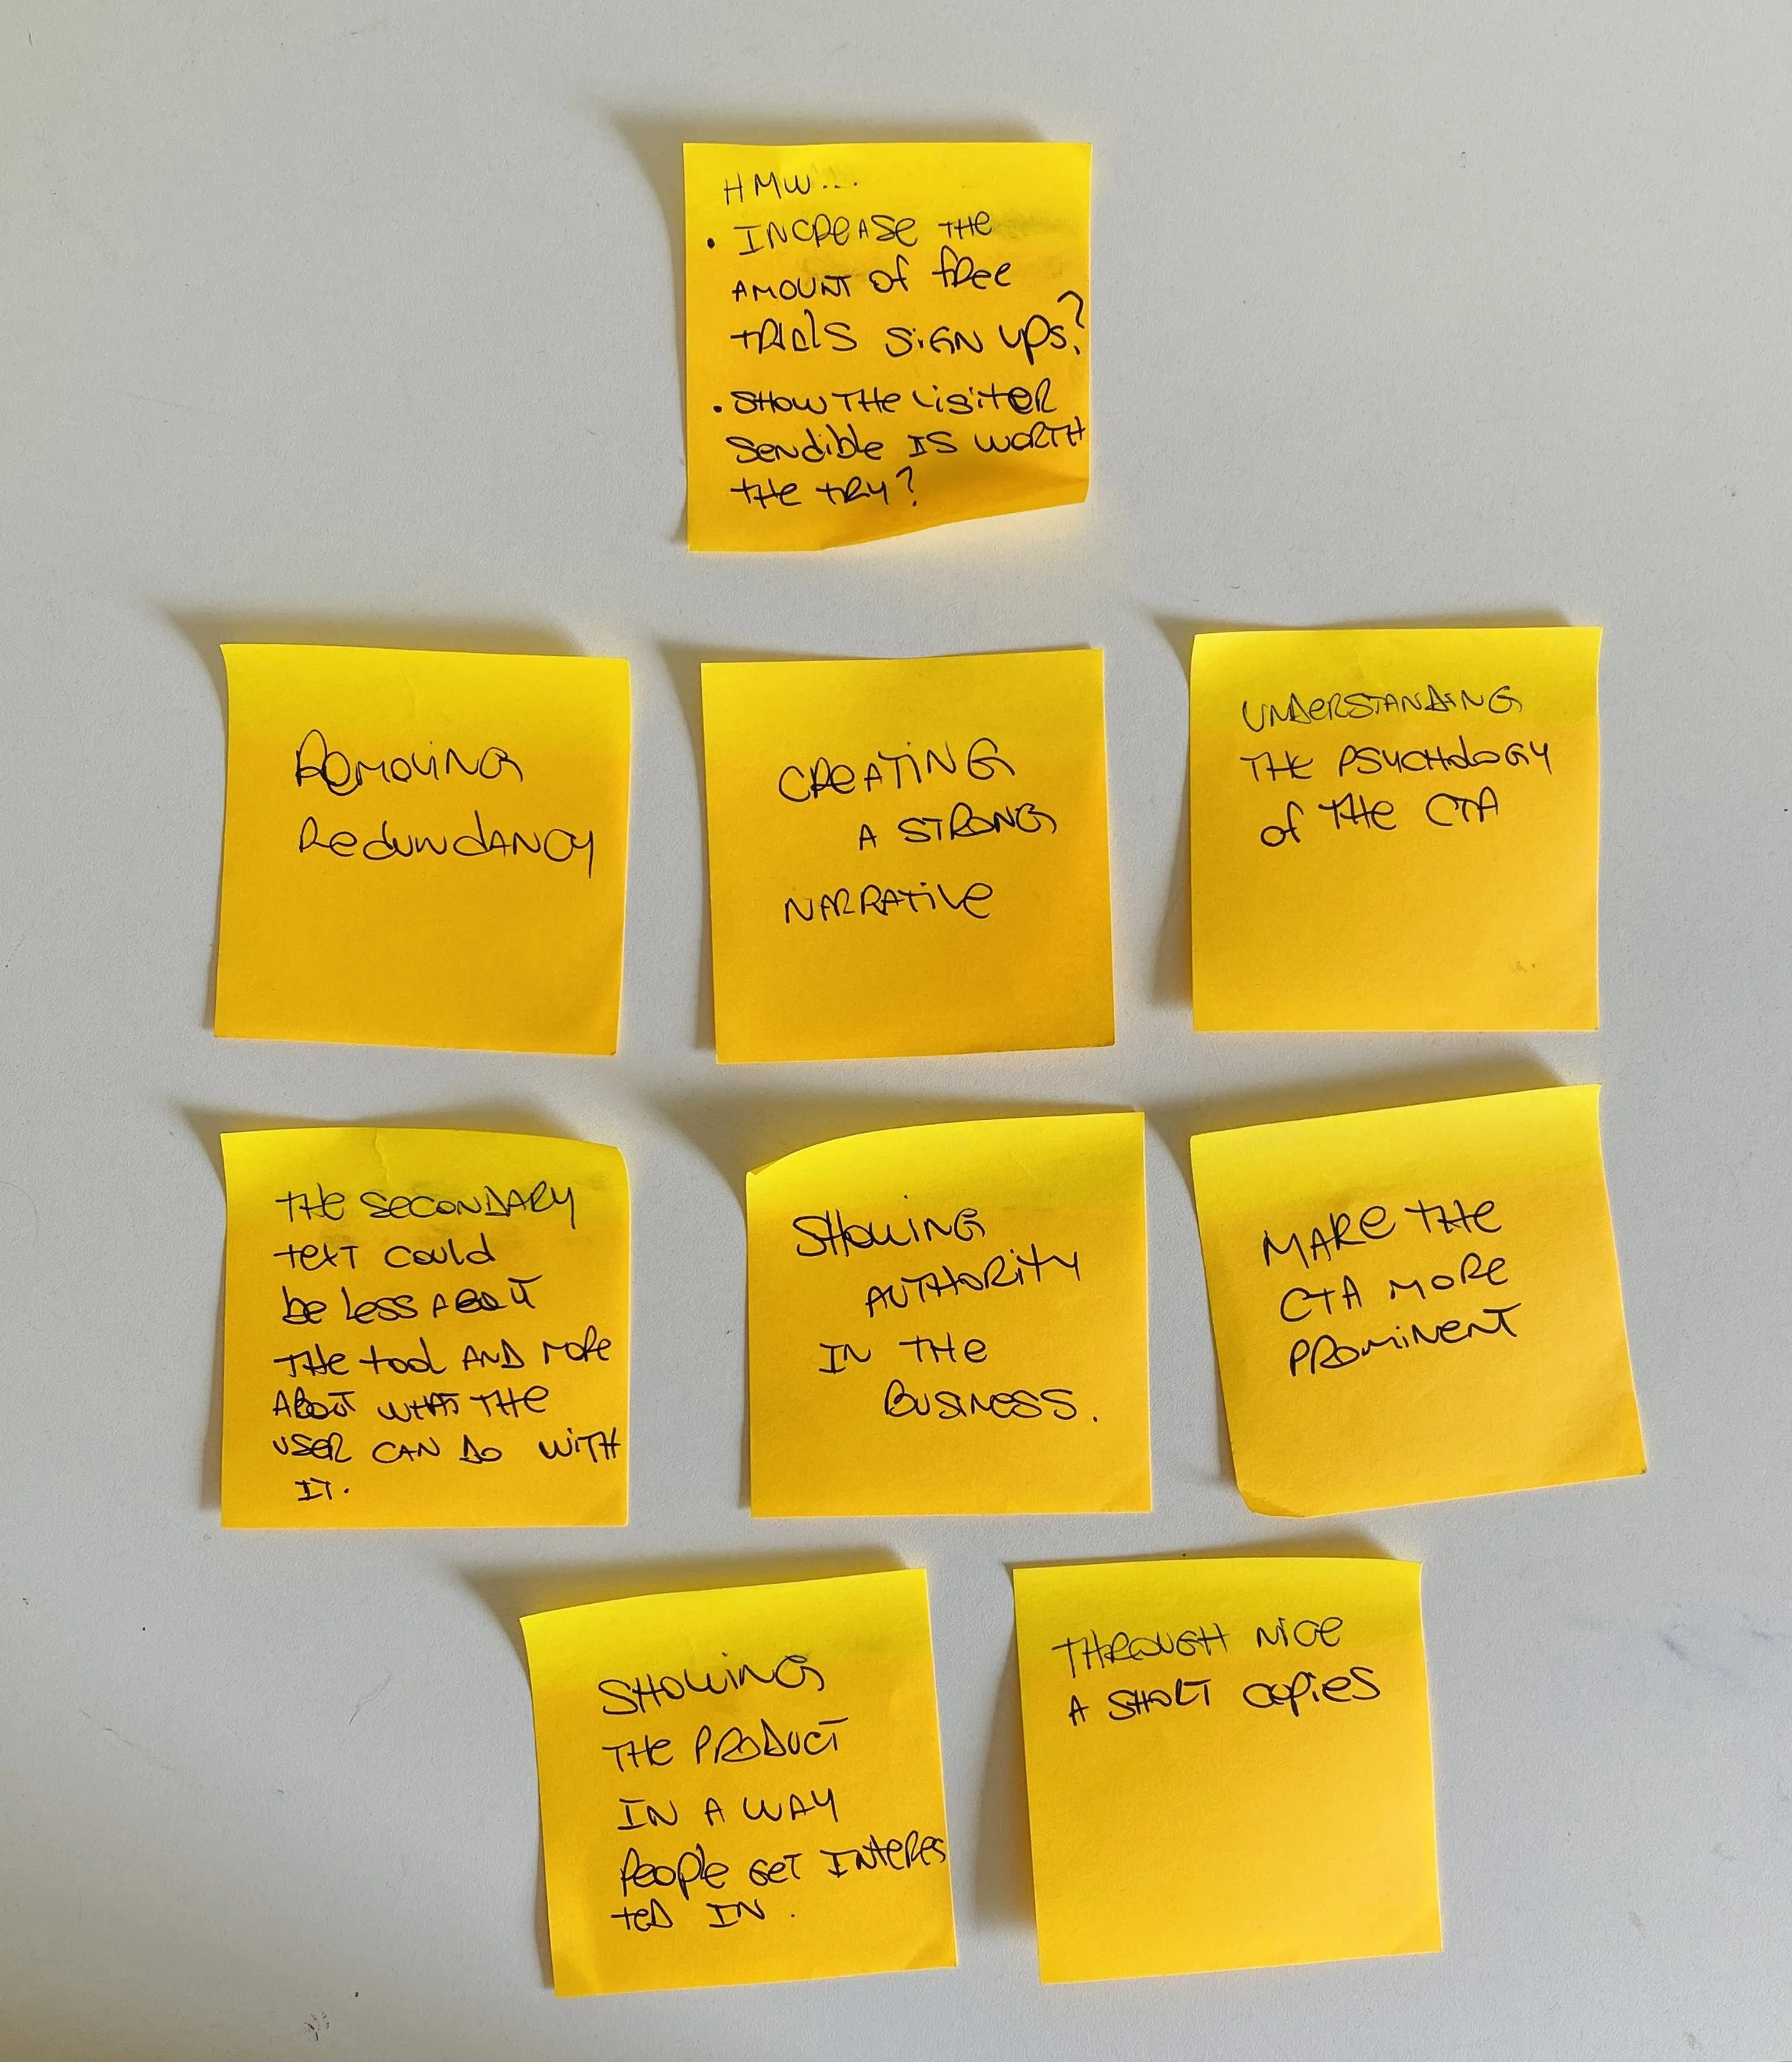 HMW...
• INCREASE THE
AMOUNT of free
TRIALS SIGN UPS?
• SHOW THE VISITER
SENDIBLE IS WORTH
THE TRY?
REMOVING
REDUNDANCY
CREATING
A STRONG
NARRATIVE
UNDERSTANDING
THE PSYCHOLOGY
of THE CTA
THE SECONDARY
TEXT COULD
be less ABOUT
THE tool AND MORE
ABOUT WHAT THE
USER CAN DO WITH
IT.
SHOWING
AUTHORITY
IN THE
BUSINESS.
MAKE THE
CTA MORE
PROMINENT
SHOWING
THE PRODUCT
IN A WAY
People GET INTERES
TED IN.
THROUGH NICE
A SHORT copies